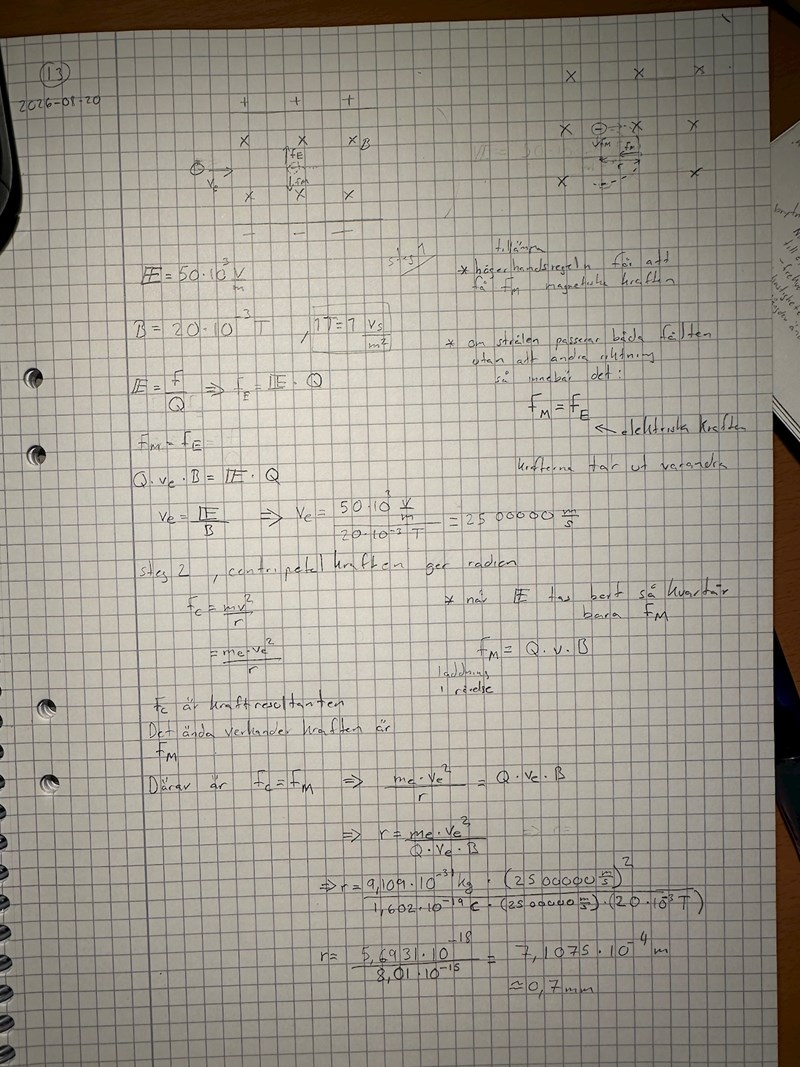 13
2026-08-20
+ + +
X X X B
F_E
V_e
F_M
X X X
- - -
X X X
X - X X
F_M F_M
r
X X
𝔼 = 50·10³ V/m
steg 1
tillämpa
* högerhandsregeln för att
få F_M magnetiska kraften
B = 20·10⁻³ T , 1T = 1 Vs/m²
* om strålen passerar båda fälten
utan att ändra riktning
så innebär det:
𝔼 = F/Q ⇒ F_E = 𝔼 · Q
F_M = F_E
← elektriska kraften
F_M = F_E
krafterna tar ut varandra
Q·v_e·B = 𝔼·Q
v_e = 𝔼/B ⇒ v_e = 50·10³ V/m / 20·10⁻³ T = 2500000 m/s
steg 2 , centripetalkraften ger radien
* när 𝔼 tas bort så kvarstår
bara F_M
F_c = mv²/r
= m_e·v_e²/r
F_M = Q·v·B
laddning
i rörelse
F_c är kraftresultanten
Det ända verkander kraften är
F_M
Därav är F_c = F_M ⇒ m_e·v_e²/r = Q·v_e·B
⇒ r = m_e·v_e²/Q·v_e·B
⇒ r = 9,109·10⁻³¹ kg · (2500000 m/s)² / 1,602·10⁻¹⁹ C · (2500000 m/s) · (20·10⁻³ T)
r = 5,6931·10⁻¹⁸ / 8,01·10⁻¹⁵ = 7,1075·10⁻⁴ m
≈ 0,7 mm